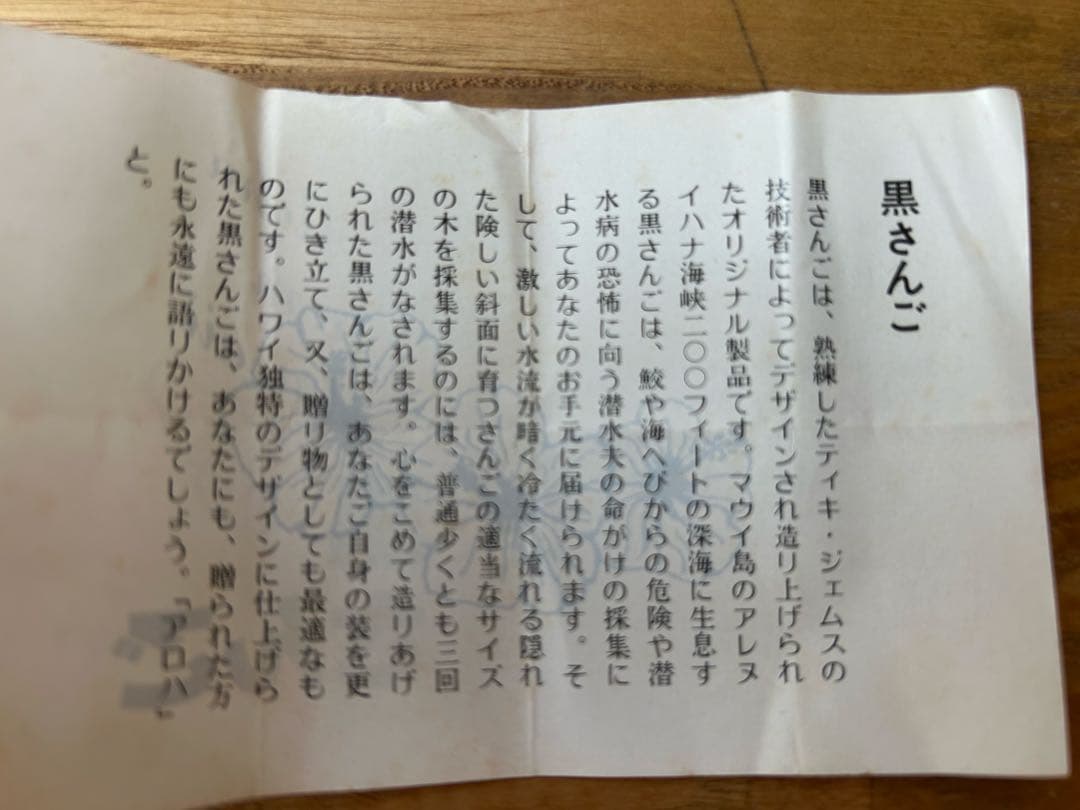 黒さんご
黒さんごは、熟練したティキ・ジェムスの
技術者によってデザインされ造り上げられ
たオリジナル製品です。マウイ島のアレヌ
イハナ海峡二〇〇フィートの深海に生息す
る黒さんごは、鮫や海へびからの危険や潜
水病の恐怖に向う潜水夫の命がけの採集に
よってあなたのお手元に届けられます。そ
して、激しい水流が暗く冷たく流れる隠れ
た険しい斜面に育つさんごの適当なサイズ
の木を採集するのには、普通少くとも三回
の潜水がなされます。心をこめて造りあげ
られた黒さんごは、あなたご自身の装を更
にひき立て、又、贈り物としても最適なも
のです。ハワイ独特のデザインに仕上げら
れた黒さんごは、あなたにも、贈られた方
にも永遠に語りかけるでしょう。「アロハ」
と。